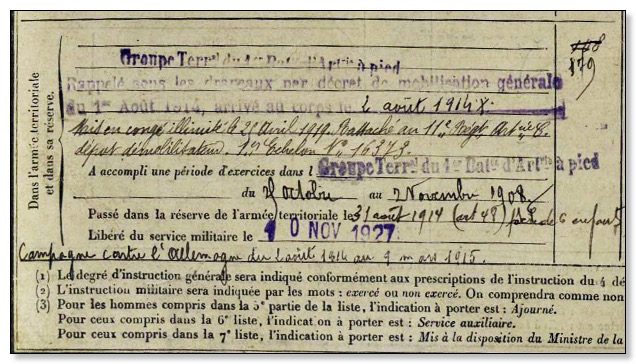 108
179
Groupe Terral du 1er Baton d'Artrie à pied
Rappelé sous les drapeaux par décret de mobilisation générale
du 1er Août 1914, arrivé au corps le 2 août 1914
Mis en congé illimité le 2 Avril 1919. Rattaché au 11e Régt Artie
dépôt démobilisateur. Echelon No 16373
Dans l'armée territoriale
et dans sa réserve.
A accompli une période d'exercices dans l Groupe Terral du 1er Baton d'Artrie à pied
du 25 Octobre au 2 Novembre 1908.
Passé dans la réserve de l'armée territoriale le 31 août 1914 (art 48) père de 6 enfants
Libéré du service militaire le 10 NOV 1927
Campagne contre l'Allemagne du 2 août 1914 au 9 mars 1915.
(1) Le degré d'instruction générale sera indiqué conformément aux prescriptions de l'instruction du 4 dé
(2) L'instruction militaire sera indiquée par les mots : exercé ou non exercé. On comprendra comme non
(3) Pour les hommes compris dans la 5e partie de la liste, l'indication à porter est : Ajourné.
Pour ceux compris dans la 6e liste, l'indication à porter est : Service auxiliaire.
Pour ceux compris dans la 7e liste, l'indication à porter est : Mis à la disposition du Ministre de la